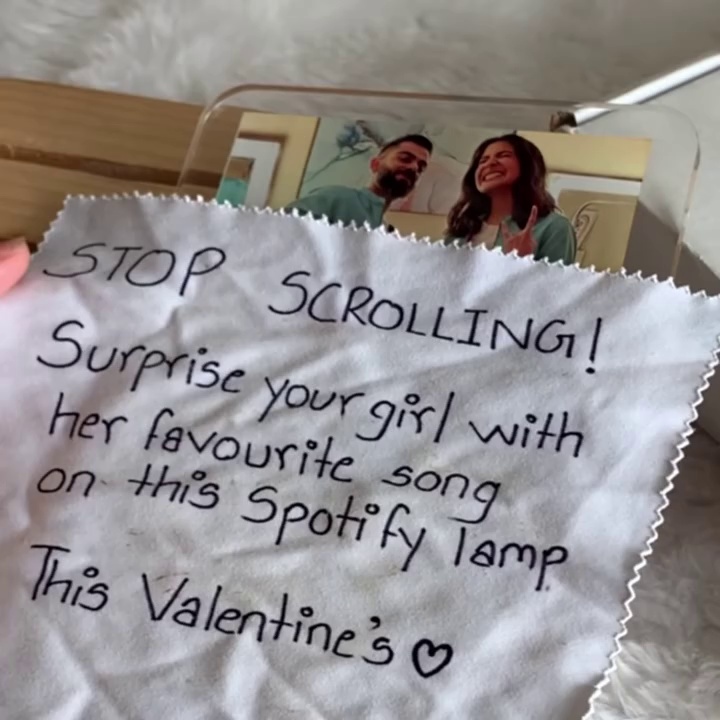 STOP SCROLLING!
Surprise your girl with
her favourite song
on this Spotify lamp
This Valentine's ♡